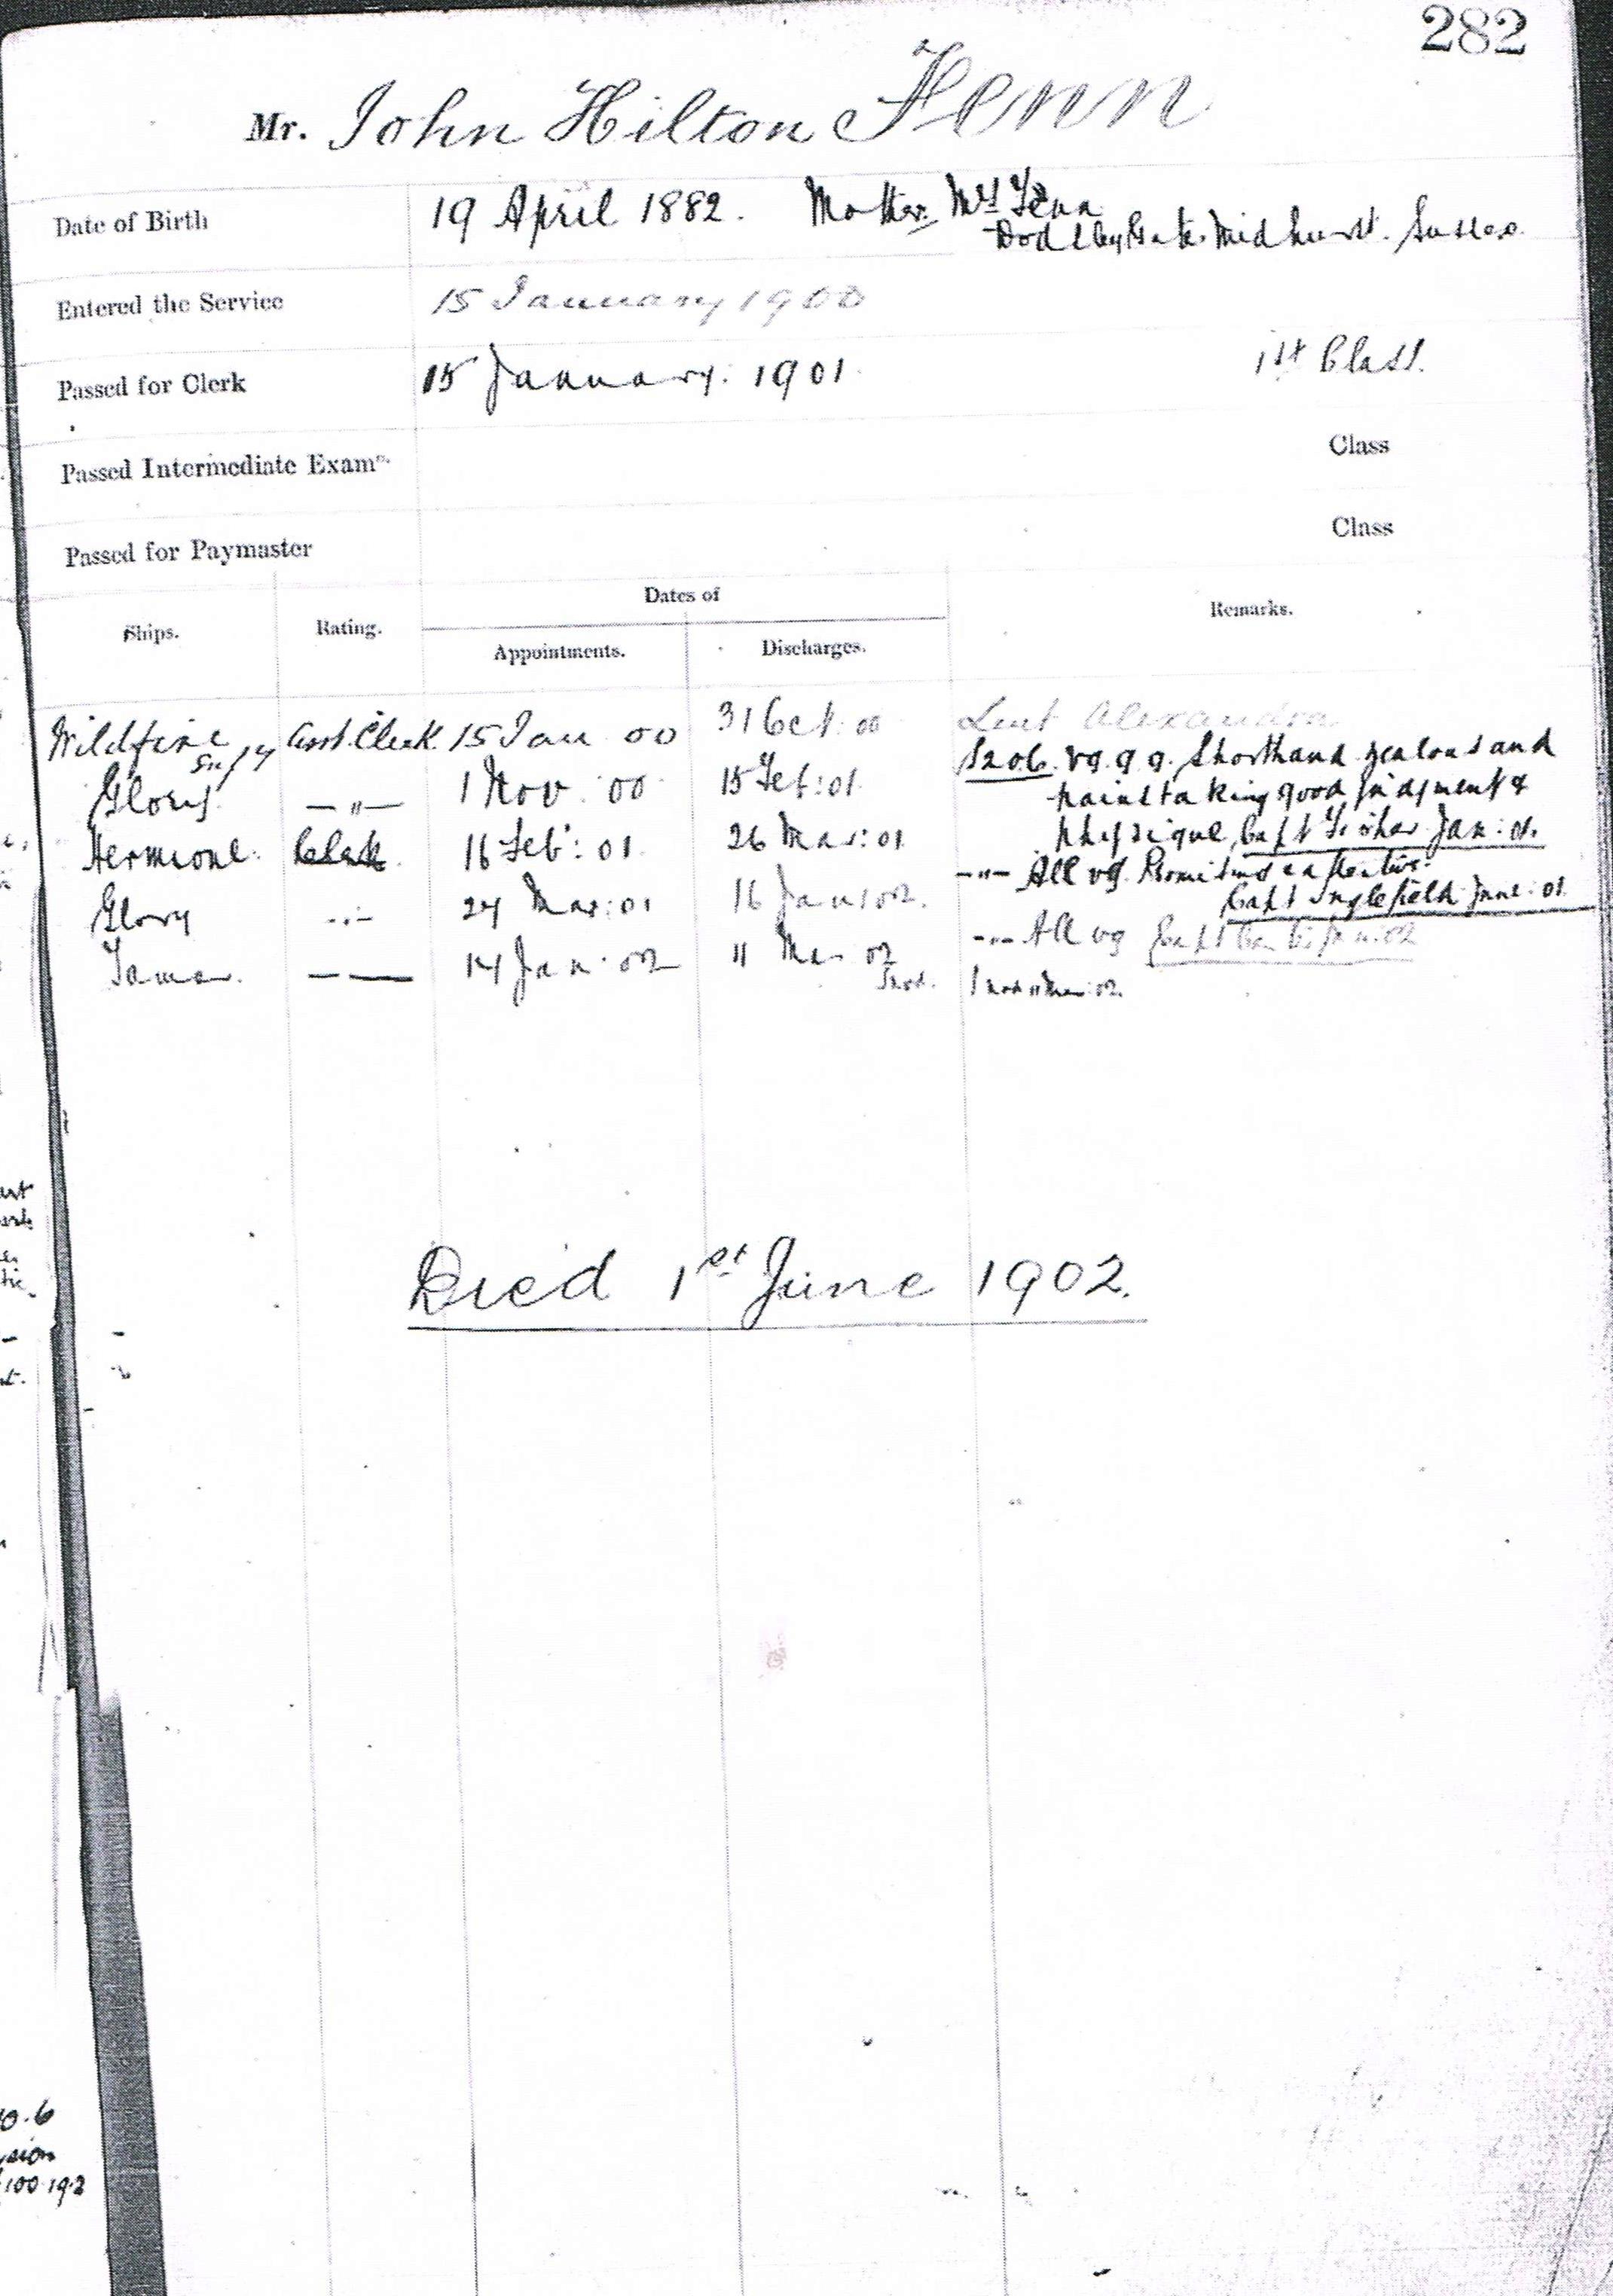 282
Mr. John Hilton Fenn
Date of Birth 19 April 1882. Mother Mrs Fenn
Midhurst. Sussex
Entered the Service 15 January 1900
Passed for Clerk 15 January. 1901 1st Class.
Passed Intermediate Examn. Class
Passed for Paymaster Class
Ships. Rating. Dates of Remarks.
Appointments. Discharges.
Wildfire Asst. Clerk. 15 Jan 00 31 Oct. 00 Lent Alexandra
S206. vg. g g. Shorthand zealous and
Glory —"— 1 Nov. 00 15 Feb: 01 painstaking good judgment &
physique, Capt Jan: 01.
Hermione. Clerk. 16 Feb: 01 26 Mar: 01 —"— All vg. Promising
Capt Inglefield June: 01
Glory 27 Mar: 01 16 Jan: 02. All vg Capt
Tamar. — — 17 Jan. 02 11 Mar 02
Died 1st June 1902.
0.6
100.19.2